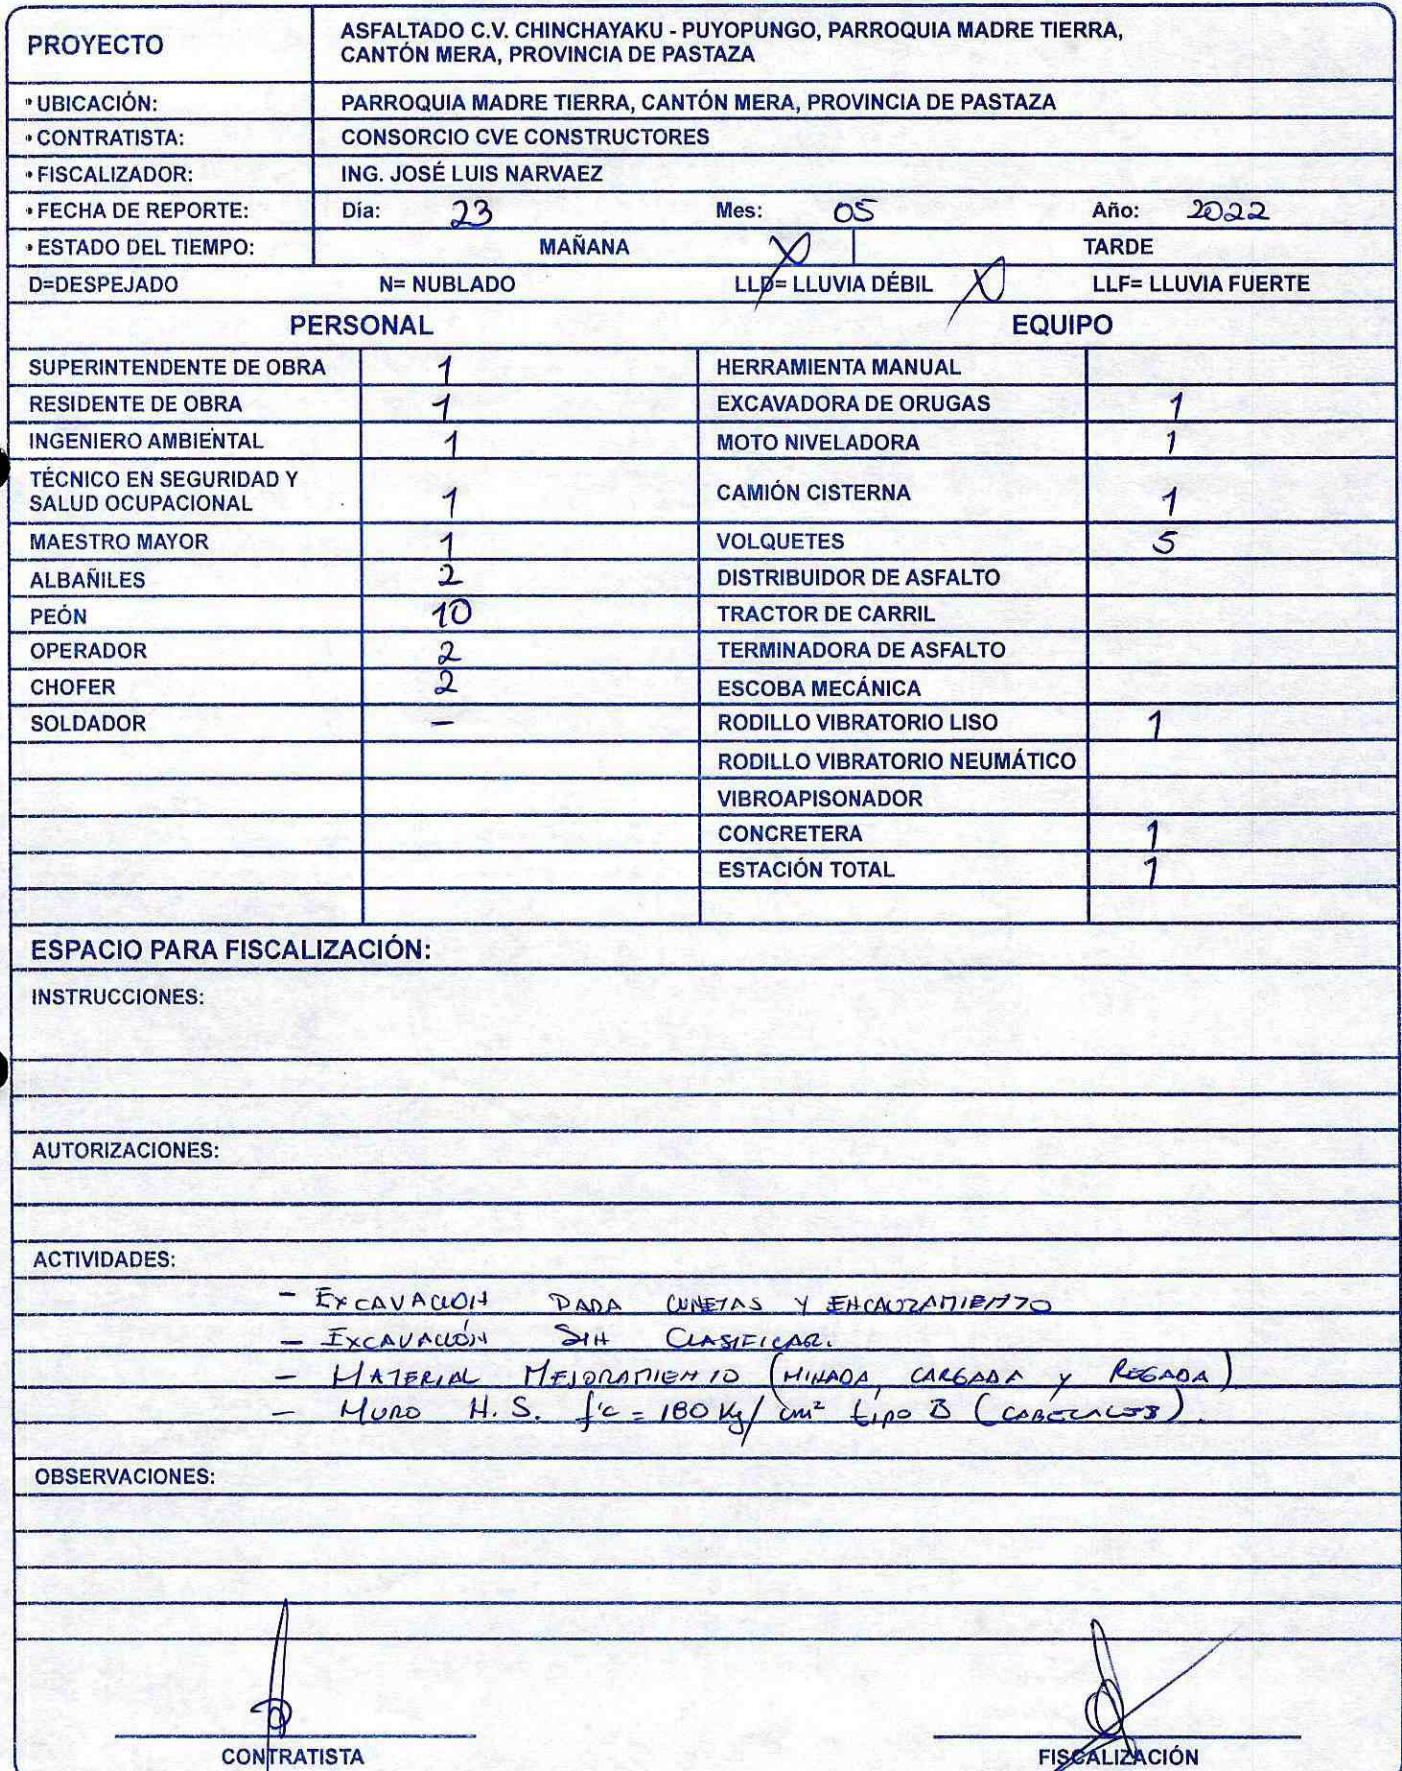 PROYECTO
ASFALTADO C.V. CHINCHAYAKU - PUYOPUNGO, PARROQUIA MADRE TIERRA,
CANTÓN MERA, PROVINCIA DE PASTAZA
UBICACIÓN: PARROQUIA MADRE TIERRA, CANTÓN MERA, PROVINCIA DE PASTAZA
CONTRATISTA: CONSORCIO CVE CONSTRUCTORES
FISCALIZADOR: ING. JOSÉ LUIS NARVAEZ
FECHA DE REPORTE: Día: 23 Mes: 05 Año: 2022
ESTADO DEL TIEMPO: MAÑANA X TARDE
D=DESPEJADO N= NUBLADO LLD= LLUVIA DÉBIL X LLF= LLUVIA FUERTE
PERSONAL EQUIPO
SUPERINTENDENTE DE OBRA 1 HERRAMIENTA MANUAL
RESIDENTE DE OBRA 1 EXCAVADORA DE ORUGAS 1
INGENIERO AMBIENTAL 1 MOTO NIVELADORA 1
TÉCNICO EN SEGURIDAD Y
SALUD OCUPACIONAL 1 CAMIÓN CISTERNA 1
MAESTRO MAYOR 1 VOLQUETES 5
ALBAÑILES 2 DISTRIBUIDOR DE ASFALTO
PEÓN 10 TRACTOR DE CARRIL
OPERADOR 2 TERMINADORA DE ASFALTO
CHOFER 2 ESCOBA MECÁNICA
SOLDADOR - RODILLO VIBRATORIO LISO 1
RODILLO VIBRATORIO NEUMÁTICO
VIBROAPISONADOR
CONCRETERA 1
ESTACIÓN TOTAL 1
ESPACIO PARA FISCALIZACIÓN:
INSTRUCCIONES:
AUTORIZACIONES:
ACTIVIDADES:
- EXCAVACION PARA CUNETAS Y ENCAUZAMIENTO
- EXCAVACIÓN SIN CLASIFICAR.
- MATERIAL MEJORAMIENTO (MINADA, CARGADA Y REGADA)
- MURO H.S. f'c = 180 Kg/cm² tipo B (CABEZALES).
OBSERVACIONES:
CONTRATISTA FISCALIZACIÓN